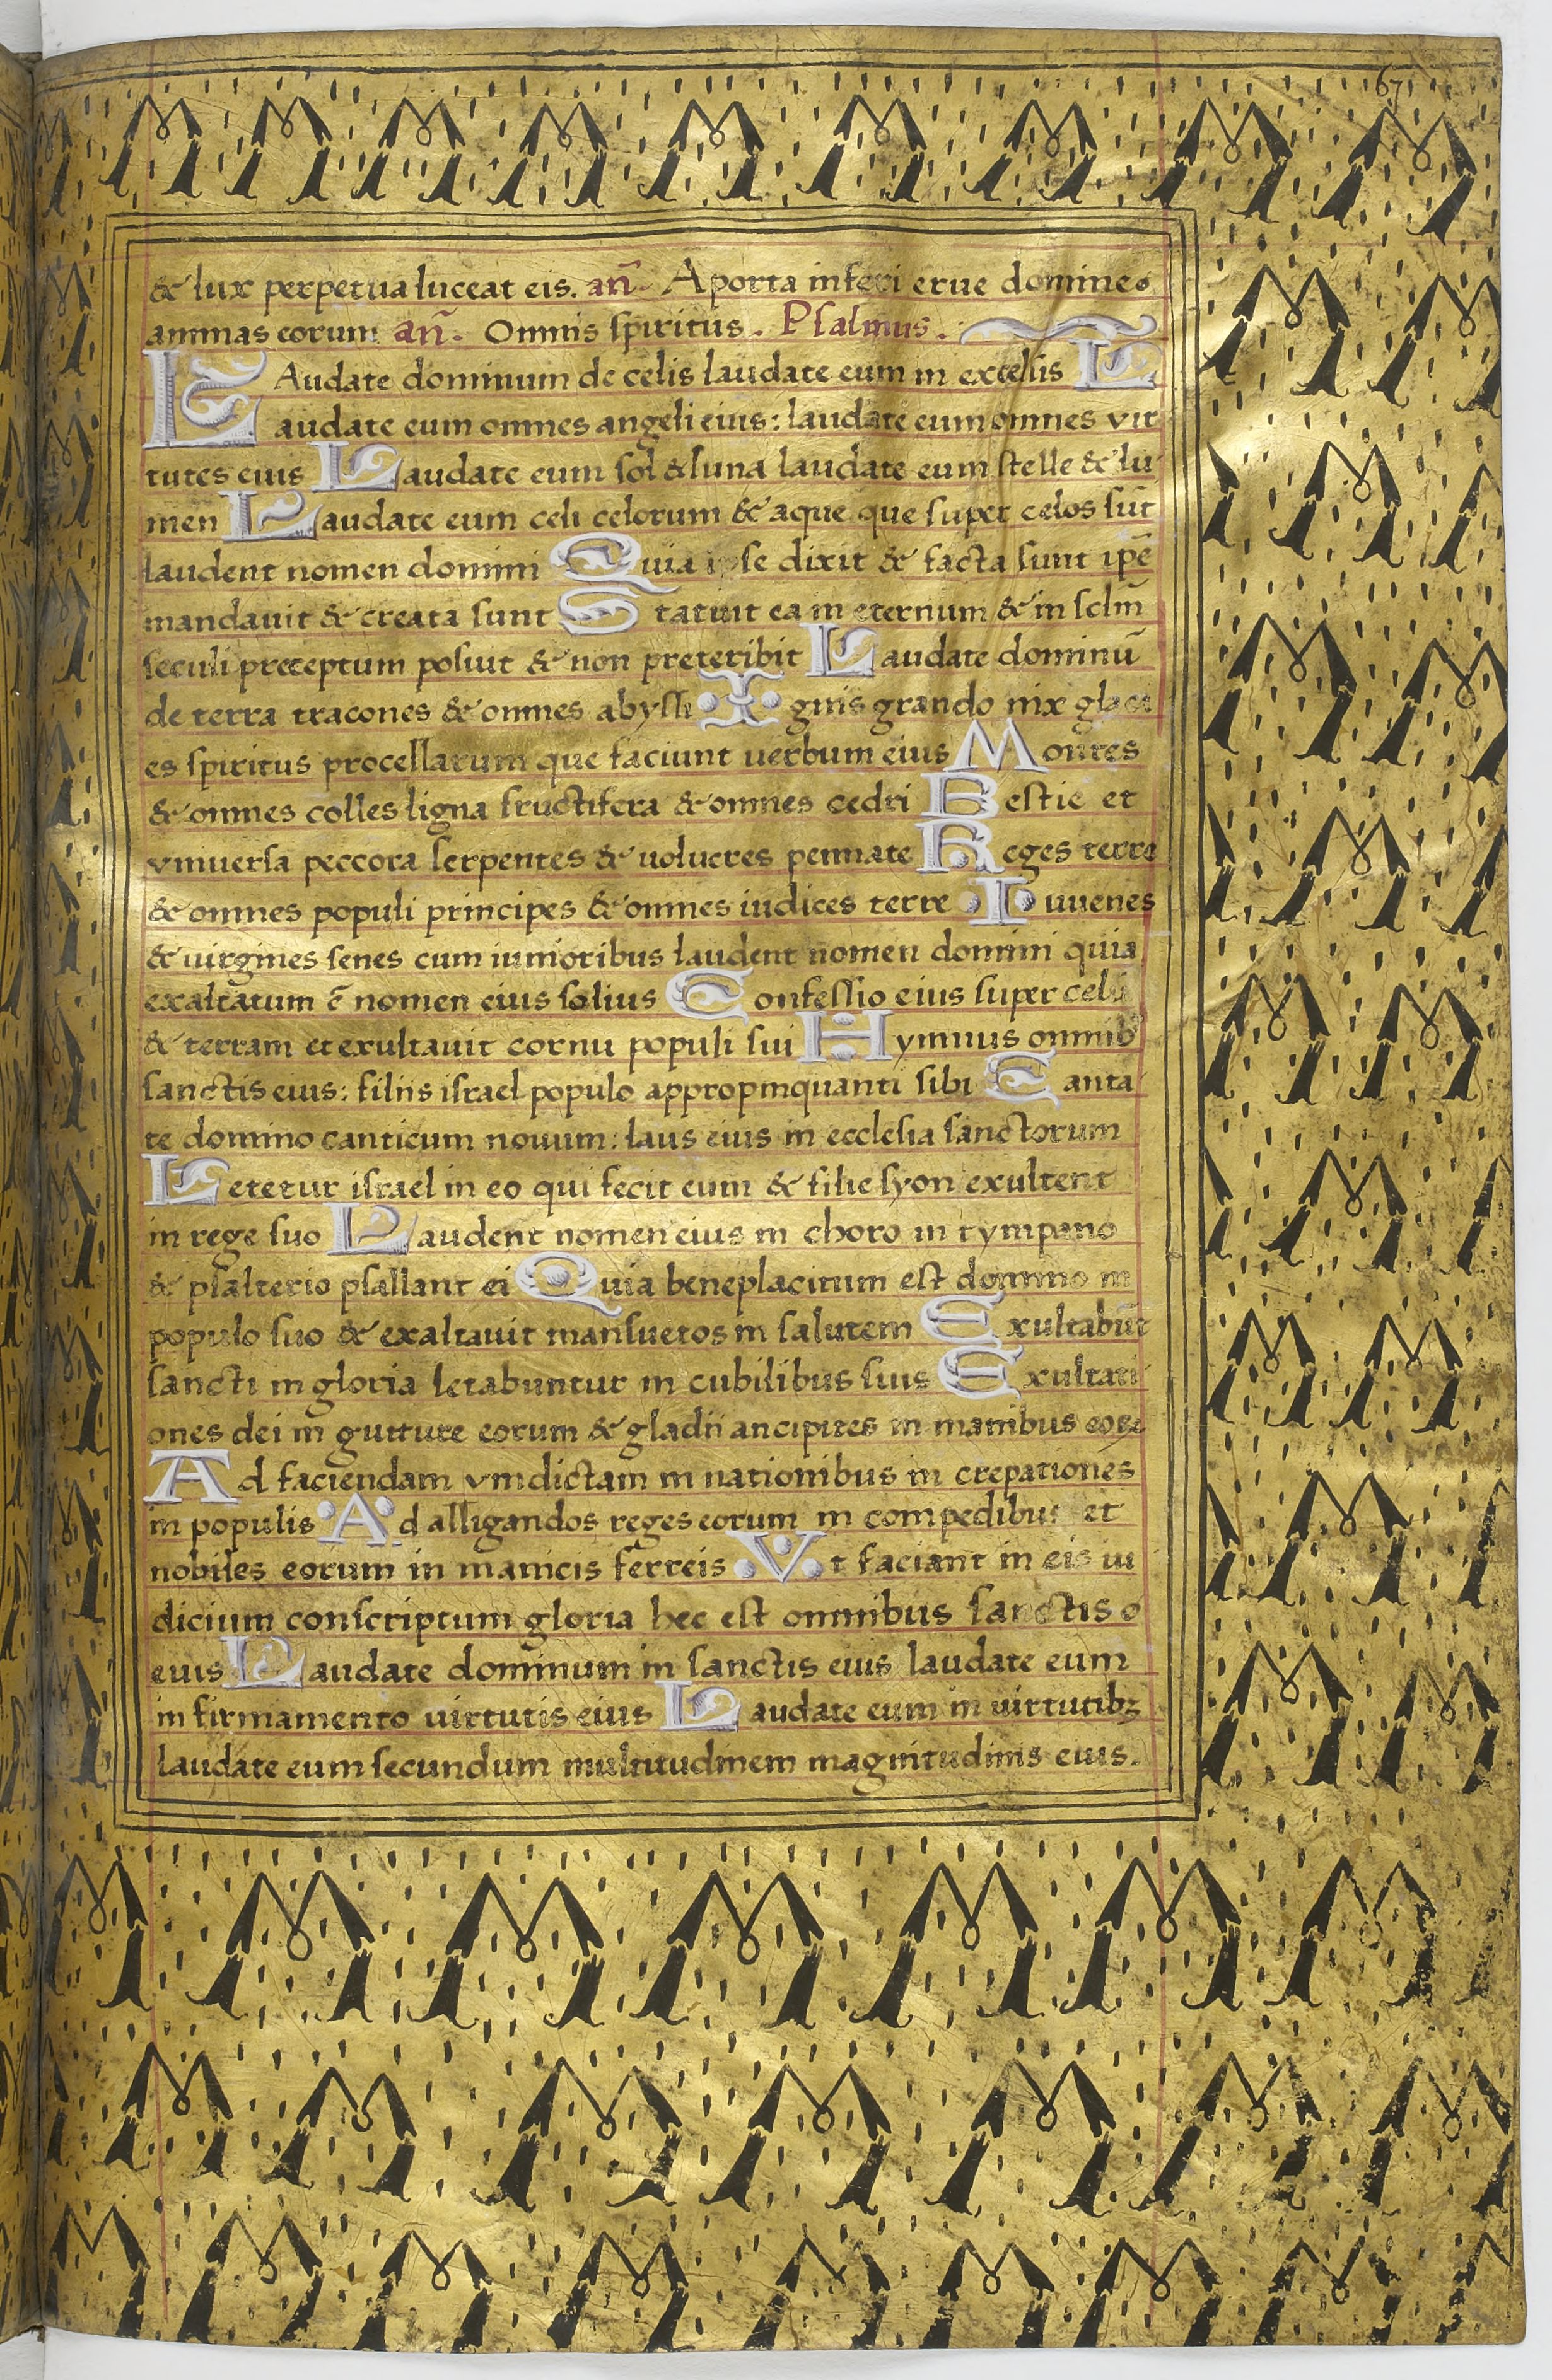 67
& lux perpetua luceat eis. añ. A porta inferi erue domine
animas eorum añ. Omnis spiritus. Psalmus.
LAudate dominum de celis laudate eum in excelsis L
audate eum omnes angeli eius: laudate eum omnes vir
tutes eius Laudate eum sol & luna laudate eum stelle & lu
men Laudate eum celi celorum & aque que super celos sūt
laudent nomen domini Quia ipse dixit & facta sunt ipē
mandauit & creata sunt Statuit ea in eternum & in sclm̄
seculi preceptum posuit & non preteribit Laudate dominū
de terra tracones & omnes abyssi Ignis grando nix glaci
es spiritus procellarum que faciunt uerbum eius Montes
& omnes colles ligna fructifera & omnes cedri Bestie et
vniuersa peccora serpentes & uolucres pennate Reges terre
& omnes populi principes & omnes iudices terre Iuuenes
& uirgines senes cum iunioribus laudent nomen domini quia
exaltatum ē nomen eius solius Confessio eius super celū
& terram et exultauit cornu populi sui Hymnus omnib⁹
sanctis eius: filiis israel populo appropinquanti sibi Canta
te domino canticum nouum: laus eius in ecclesia sanctorum
Letetur israel in eo qui fecit eum & filie syon exultent
in rege suo Laudent nomen eius in choro in tympano
& psalterio psallant ei Quia beneplacitum est domino in
populo suo & exaltauit mansuetos in salutem Exultabūt
sancti in gloria letabuntur in cubilibus suis Exultati
ones dei in gutture eorum & gladii ancipites in manibus eoꝝ
Ad faciendam vindictam in nationibus in crepationes
in populis Ad alligandos reges eorum in compedibus et
nobiles eorum in manicis ferreis Vt faciant in eis iu
dicium conscriptum gloria hec est omnibus sanctis
eius Laudate dominum in sanctis eius laudate eum
in firmamento uirtutis eius Laudate eum in uirtutibꝫ
laudate eum secundum multitudinem magnitudinis eius.